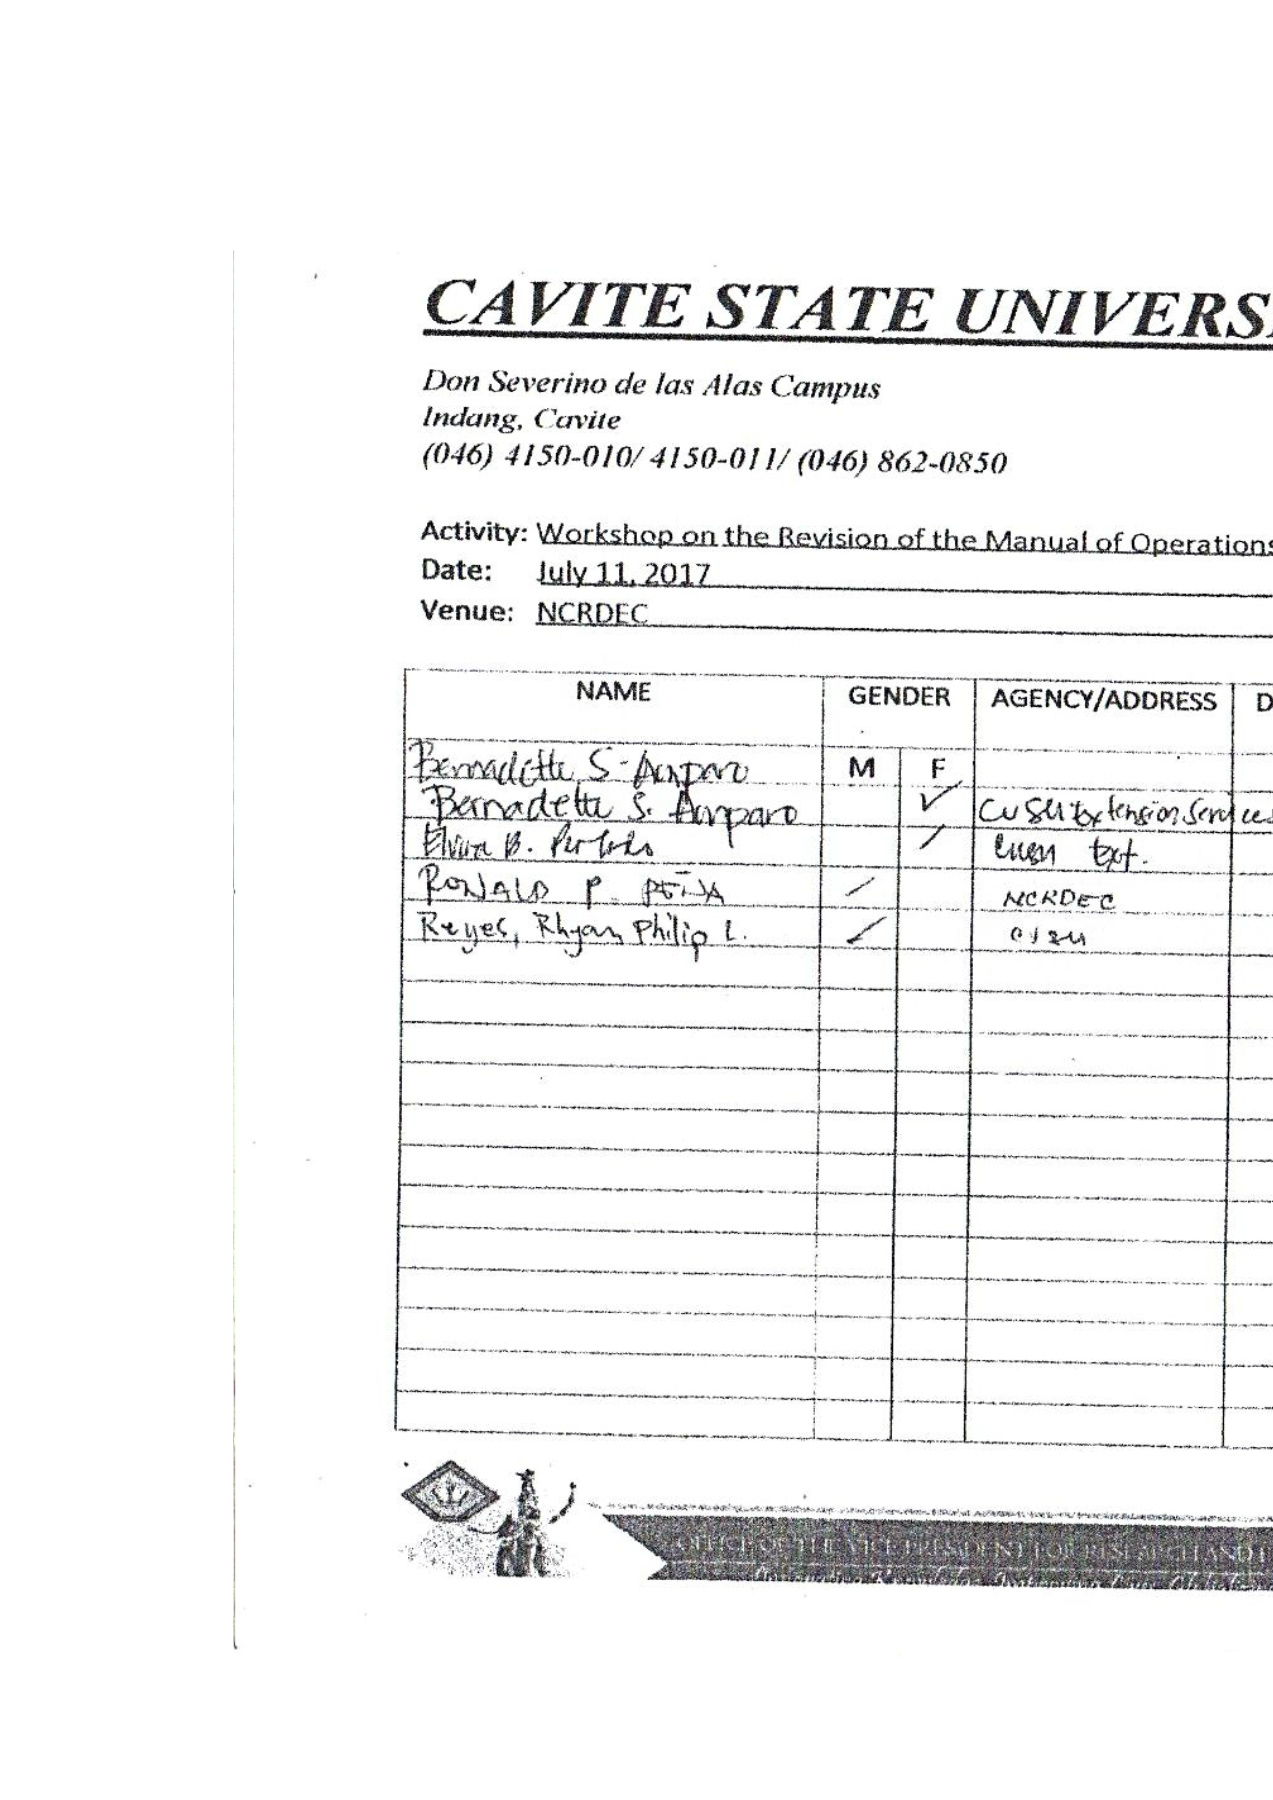 CAVITE STATE UNIVERS
Don Severino de las Alas Campus
Indang, Cavite
(046) 4150-010/ 4150-011/ (046) 862-0850
Activity: Workshop on the Revision of the Manual of Operations
Date: July 11, 2017
Venue: NCRDEC
NAME GENDER AGENCY/ADDRESS D
Bernadette S. Amparo M F
Bernadette S. Amparo ✓ CvSU Extension Services
Elvira B. /
RONALD P. PEÑA / NCRDEC
Reyes, Rhyan Philip L. ✓ CvSU
OFFICE OF THE VICE PRESIDENT FOR RESEARCH AND E